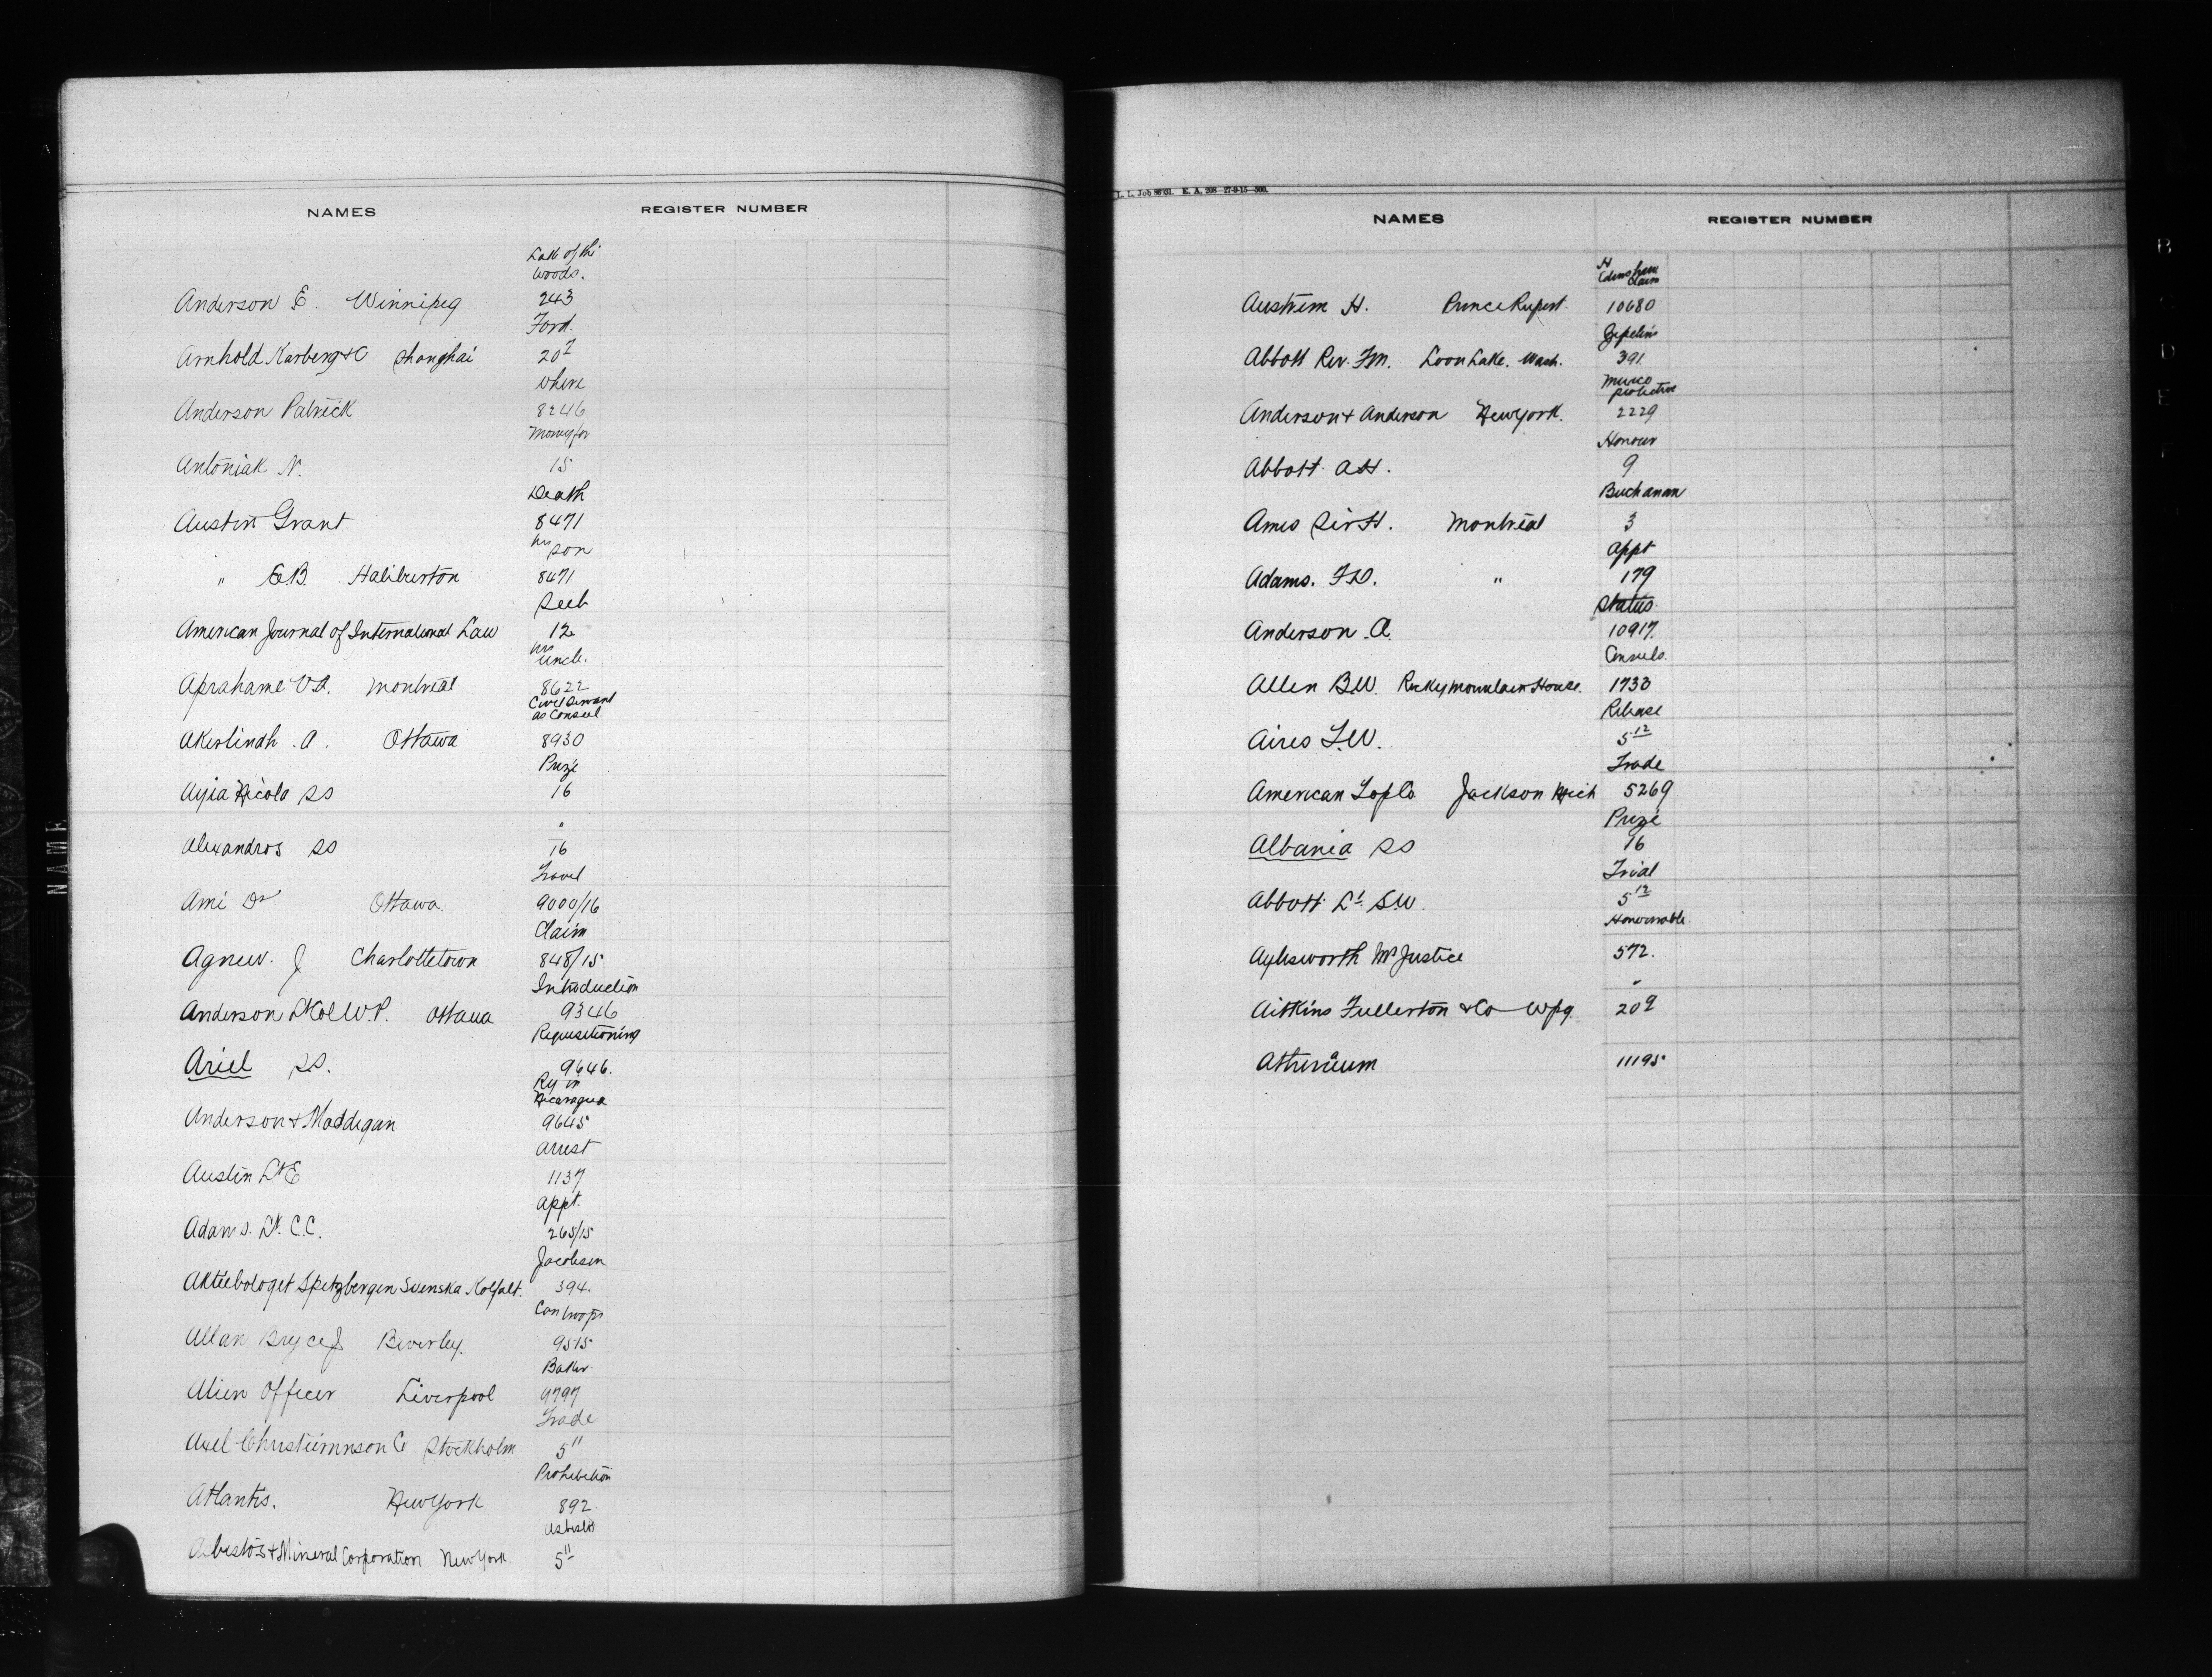 NAMES REGISTER NUMBER
Lake of the
Woods.
Anderson E. Winnipeg 243
Ford.
Arnhold Karberg & Co Shanghai 20
where
Anderson Patrick 8246
Money for
Antoniak N. 15
Death
Austin Grant 8471
his son
" E.B. Haliburton 8471
Seeb
American Journal of International Law 12
his uncle.
Aprahame V.A. Montreal 8622
Civil Servant
as Consul
Akerlindh. A. Ottawa 8930
Prize
Ayia Nicola SS 16
"
Alexandros SS 16
Travel
Ami Dr Ottawa 9000/16
Claim
Agnew. J Charlottetown 848/15
Introduction
Anderson Lt Col W.P. Ottawa 9346
Requisitioning
Ariel SS. 9646.
Ry in
Nicaragua
Anderson & Maddigan 9645
Arrest
Austin Lt E 1137
Appt.
Adams. Lt. C.C. 265/15
Jacobsen
Aktiebologet Spetzbergen Svenska Kolfalt. 394.
Can troops
Allan Bryce J Beverley. 9515
Baker
Alien Officer Liverpool 9797
Trade
Axel Christiernnson Co Stockholm 5 11
Prohibition
Atlantis. New York 892
Asbestos
Asbestos & Mineral Corporation New York 5 11
L. L. Job 98701. E. A. 208—27-9-15—500.
NAMES REGISTER NUMBER
H
Edenshaw
Claim
Austrem H. Prince Rupert 10680
Zepelins
Abbott Rev. F.M. Loon Lake. Wash. 391
Mexico
protection
Anderson & Anderson New York. 2229
Honour
Abbott A.H. 9
Buchanan
Ames Sir H. Montreal 3
Appt
Adams. F.D. " 179
Status.
Anderson. A. 10917.
Consuls.
Allen B.W. Rocky Mountain House. 1733
Release
Aires L.W. 5 12
Trade
American Top Co Jackson Mich 5269
Prize
Albania SS 16
Trial
Abbott Lt. S.W. 5 12
Honourable.
Aylesworth Mr Justice 572.
"
Aitkins Fullerton & Co Wpg. 20 9
Atheneum 11195
NAME
B
C
D
E